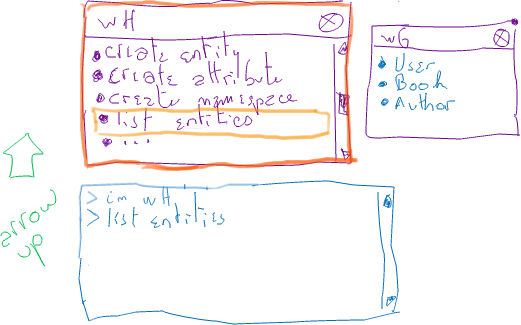 wH
create entity
create attribute
create namespace
list entities
...
wG
User
Book
Author
> im wH
> list entities
arrow
up